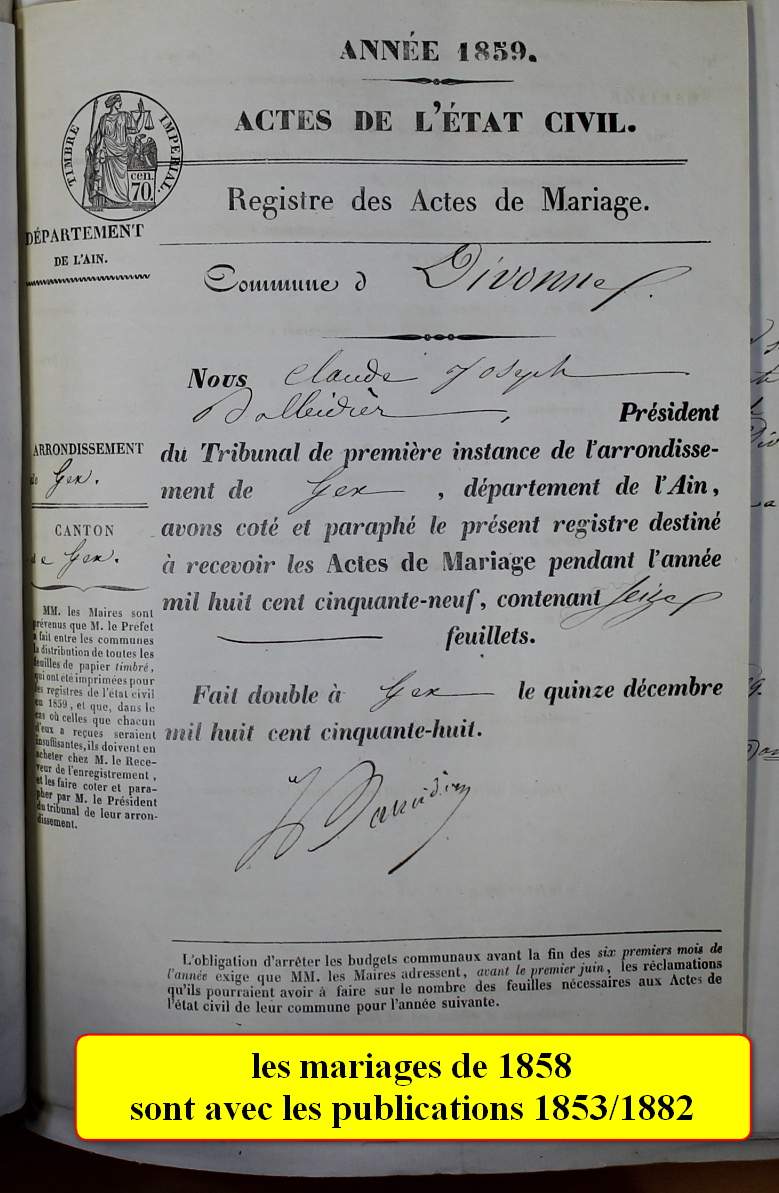 ANNÉE 1859.
ACTES DE L'ÉTAT CIVIL.
TIMBRE IMPERIAL.
cen.
70.
Registre des Actes de Mariage.
DÉPARTEMENT
DE L'AIN.
Commune d Divonne
Nous Claude Joseph
, Président
ARRONDISSEMENT
de Gex.
du Tribunal de première instance de l'arrondisse-
ment de Gex , département de l'Ain,
CANTON
de Gex.
avons coté et paraphé le présent registre destiné
à recevoir les Actes de Mariage pendant l'année
mil huit cent cinquante-neuf, contenant seize
feuillets.
Fait double à Gex le quinze décembre
mil huit cent cinquante-huit.
MM. les Maires sont
prévenus que M. le Prefet
a fait entre les communes
la distribution de toutes les
feuilles de papier timbré,
qui ont été imprimées pour
les registres de l'état civil
en 1859, et que, dans le
cas où celles que chacun
d'eux a reçues seraient
insuffisantes, ils doivent en
acheter chez M. le Rece-
veur de l'enregistrement,
et les faire coter et para-
pher par M. le Président
du tribunal de leur arron-
dissement.
L'obligation d'arrêter les budgets communaux avant la fin des six premiers mois de
l'année exige que MM. les Maires adressent, avant le premier juin, les réclamations
qu'ils pourraient avoir à faire sur le nombre des feuilles nécessaires aux Actes de
l'état civil de leur commune pour l'année suivante.
les mariages de 1858
sont avec les publications 1853/1882